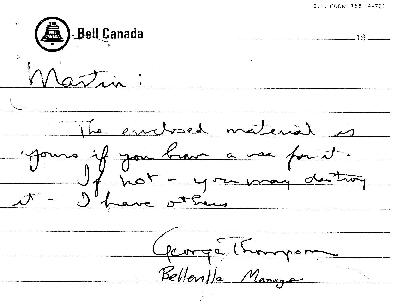 Bell Canada
19
Martin:
The enclosed material is
yours if you have a use for it.
If not - you may destroy
it - I have others
George Thompson
Belleville Manager